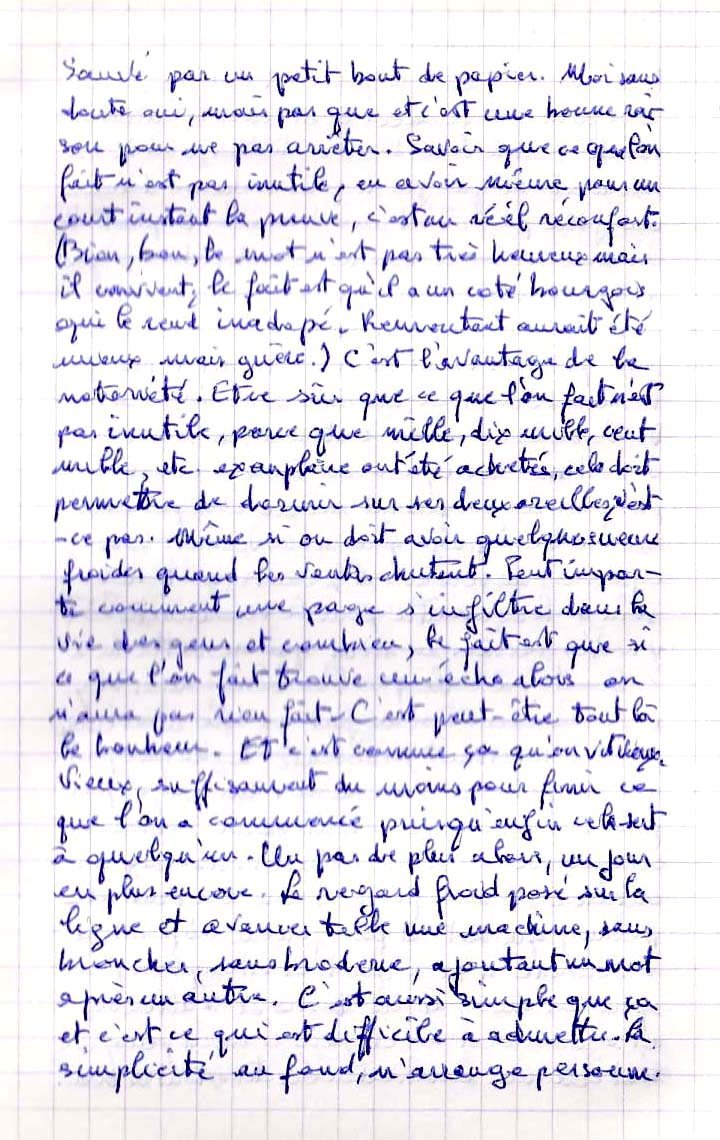 Sauvé par un petit bout de papier. Moi sans
doute oui, mais pas que et c'est une bonne rai
son pour ne pas arrêter. Savoir que ce que l'on
fait n'est pas inutile, en avoir même pour un
court instant la preuve, c'est un réel réconfort.
(Bien, bon, le mot n'est pas très heureux mais
il convient, le fait est qu'il a un coté bourgois
qui le rend inadapé. Remontant aurait été
mieux mais guère.) C'est l'avantage de la
notoriété. Etre sûr que ce que l'on fait n'est
pas inutile, parce que mille, dix mille, cent
mille, etc. exemplaire ont été achetés, cela doit
permettre de dormir sur ses deux oreilles, n'est
-ce pas. Même si on doit avoir quelques sueurs
froides quand les ventes chutent. Peut impor-
te comment une page s'infiltre dans la
vie des gens et combien, le fait est que si
ce que l'on fait trouve un écho alors on
n'aura pas rien fait. C'est peut-être tout là
le bonheur. Et c'est comme ça qu'on vit
vieux, suffisamment du moins pour finir ce
que l'on a commencé puisqu'enfin cela sert
à quelqu'un. Un pas de plus alors, un jour
en plus encore. Le regard froid posé sur la
ligne et avancer telle une machine, sans
broncher, sans broderie, ajoutant un mot
après un autre. C'est aussi simple que ça
et c'est ce qui est difficile à admettre. La
simplicité au fond, n'arrange personne.